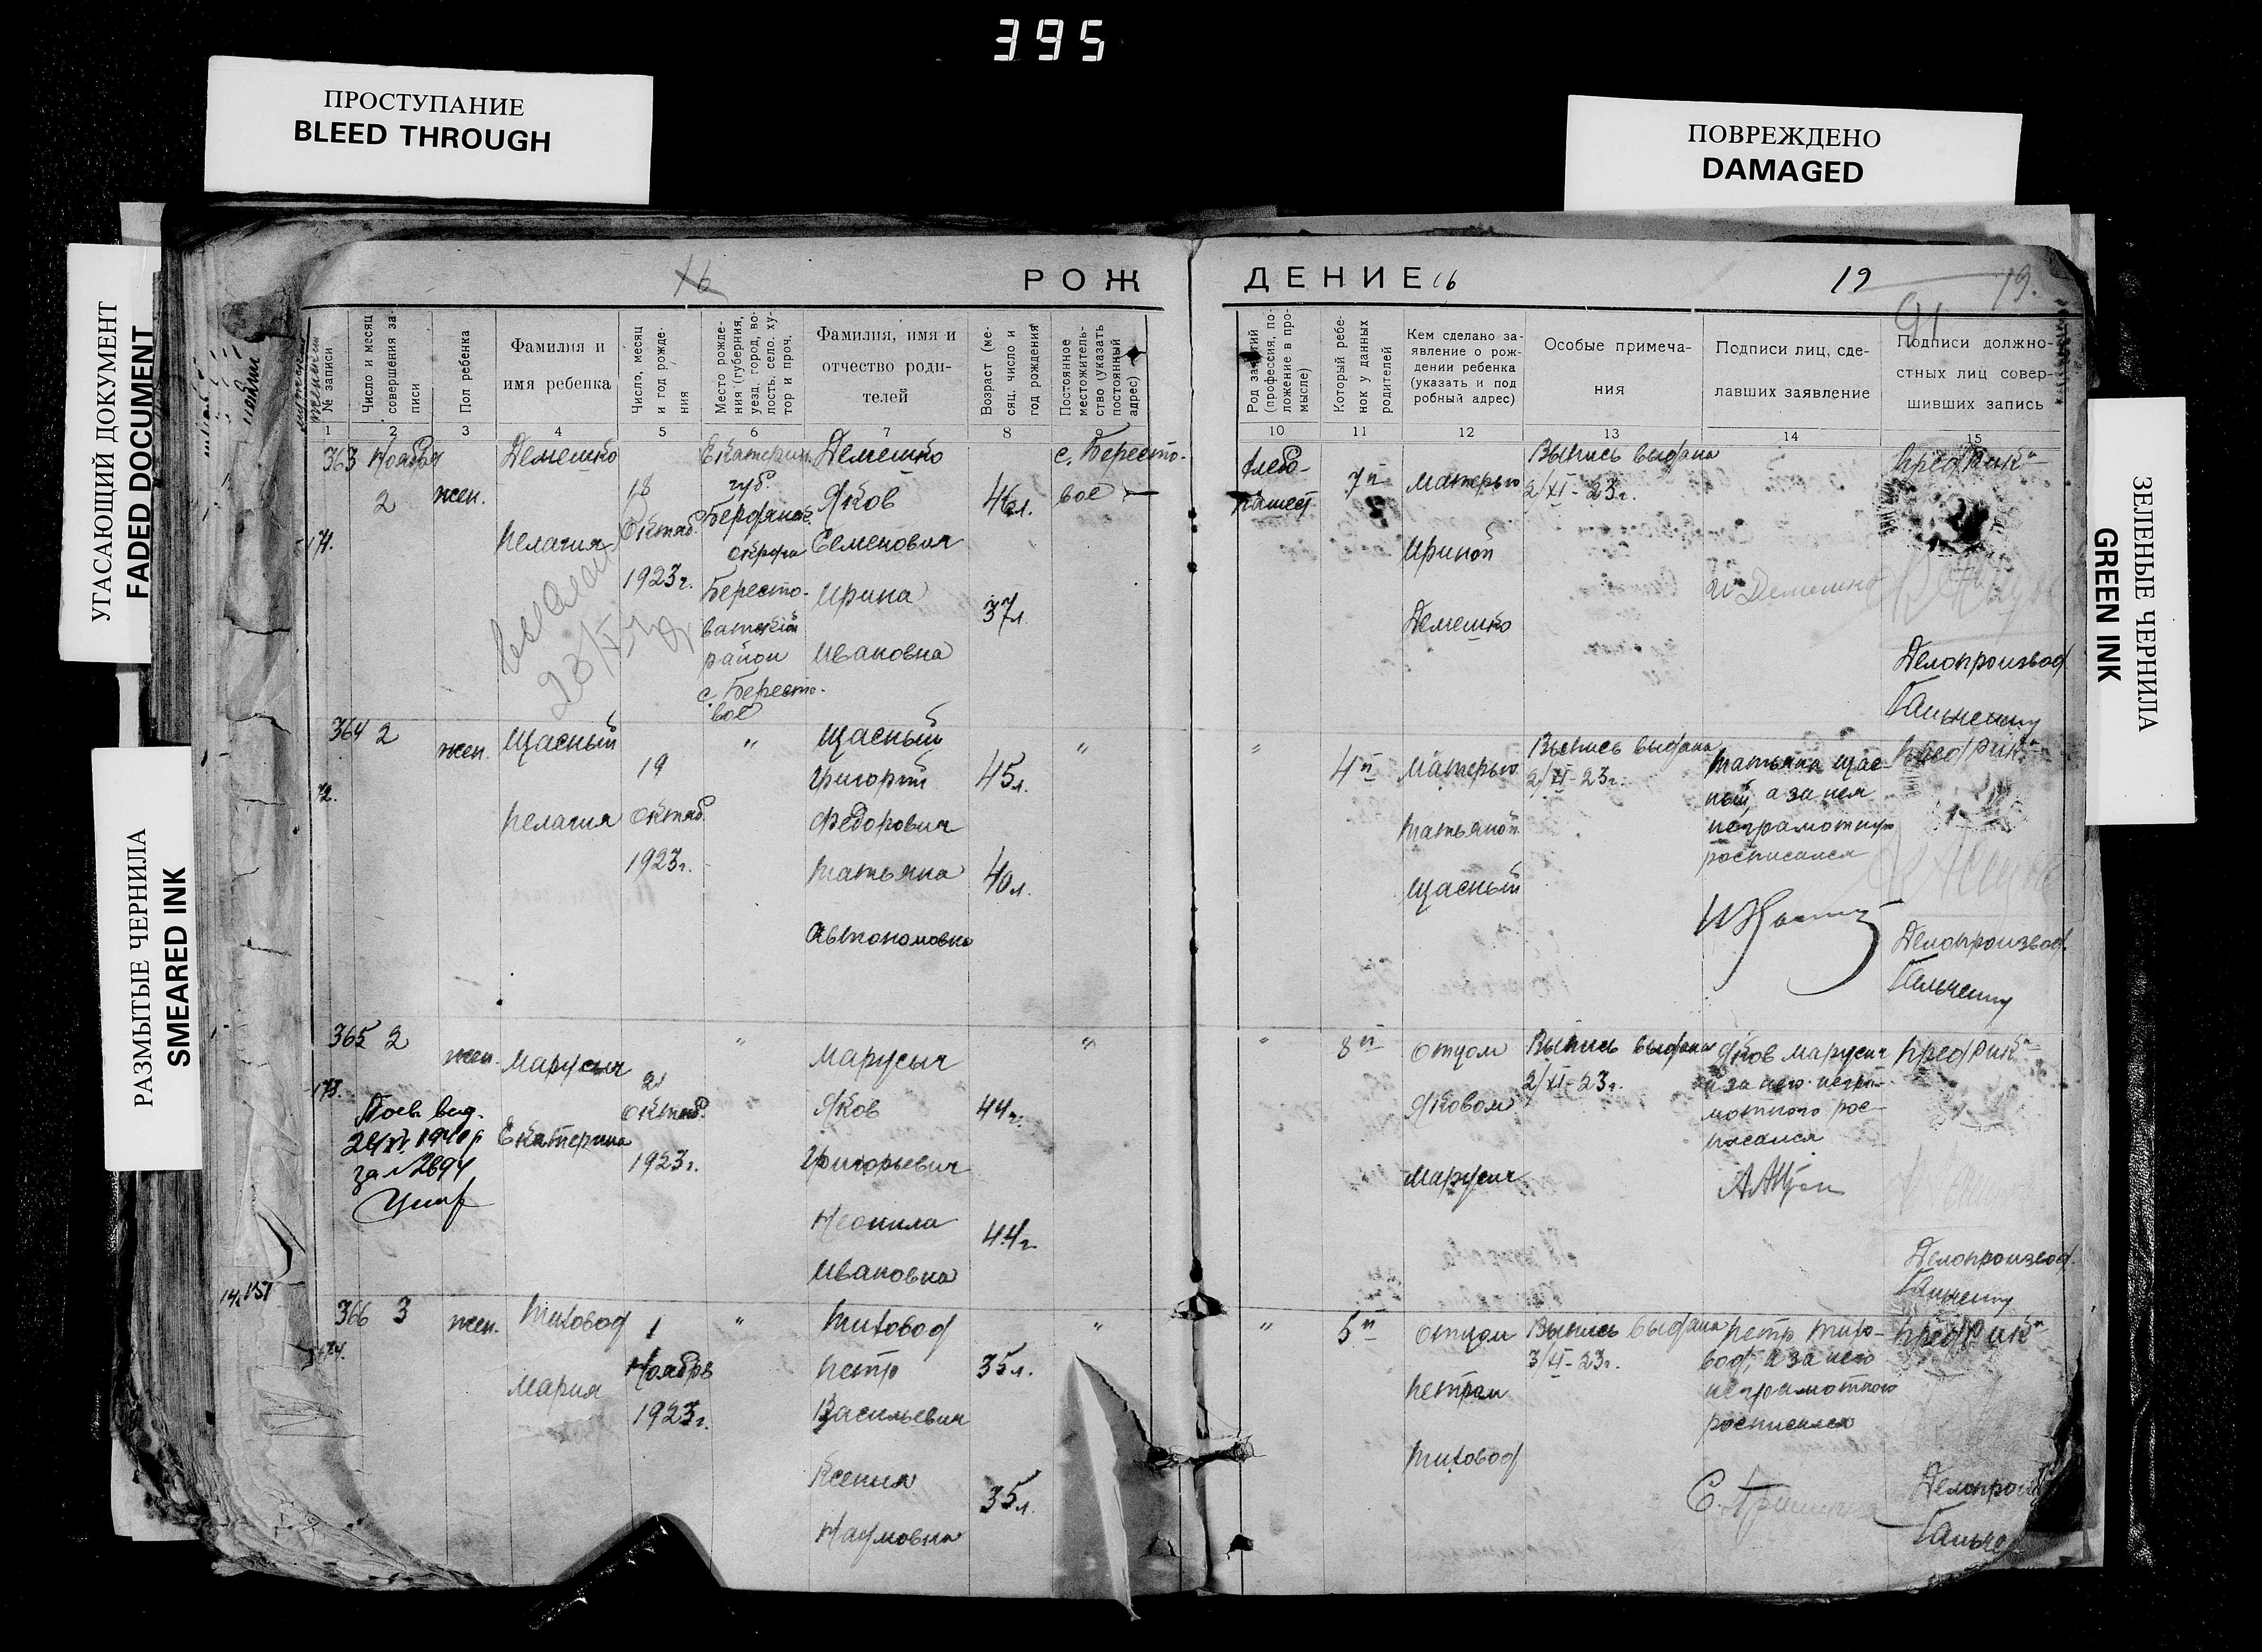 395
ПРОСТУПАНИЕ
BLEED THROUGH
ПОВРЕЖДЕНО
DAMAGED
УГАСАЮЩИЙ ДОКУМЕНТ
FADED DOCUMENT
РАЗМЫТЫЕ ЧЕРНИЛА
SMEARED INK
ЗЕЛЕНЫЕ ЧЕРНИЛА
GREEN INK
16
РОЖДЕНИЕ 16
19
19.
91
№ записи
Число и месяц совершения записи
Пол ребенка
Фамилия и
имя ребенка
Число, месяц и год рождения
Место рождения (губерния, уезд, город, волость, село, хутор и проч.
Фамилия, имя и
отчество роди-
телей
Возраст (месяц, число и год рождения
Постоянное местожительство (указать постоянный адрес)
Род занятий (профессия, положение в промысле)
Который ребенок у данных родителей
Кем сделано за-
явление о рож-
дении ребенка
(указать и под
робный адрес)
Особые примеча-
ния
Подписи лиц, сде-
лавших заявление
Подписи должно-
стных лиц совер-
шивших запись
1 2 3 4 5 6 7 8 9 10 11 12 13 14 15
363 Ноября
2
жен.
Демешко
Пелагия
18
Октяб.
1923г.
Екатерин.
губ.
Бердянск.
округа
Бересто-
ватский
район
с. Бересто-
вое
Демешко
Яков
Семенович
46л.
Ирина
Ивановна
37л
с. Бересто-
вое
Хлебо-
пашест
7й
Матерью
Ириной
Демешко
Выпись выдана
2/XI-23г.
Демешко
Пред Рик
Делопроизвод
364 2
жен.
Щасный
Пелагия
19
октяб.
1923г.
"
Щасный
Григорий
Федорович
45л.
Татьяна
Автономовна
40л.
"
"
4й
Матерью
Татьяной
Щасный
Выпись выдана
2/XI-23г.
Татьяна Щас-
ный, а за нея
неграмотную
росписался
Пред Рик
Делопроизвод.
365 2
жен.
Марусыч
Екатерина
21
октяб.
1923г.
"
Марусыч
Яков
Григорьевич
44г.
Неонила
Ивановна
44г.
"
"
8й
Отцом
Яковом
Марусич
Выпись выдана
2/XI-23г.
Яков Марусич
а за него негра-
мотного рос-
писался
Пред Рик
Делопроизвод.
173.
366 3
жен.
Титовод
Мария
1
Ноября
1923г.
"
Титовод
Петр
Васильевич
35л.
Ксения
Наумовна
35л.
"
"
5й
Отцом
Петром
Титовод
Выпись выдана
3/XI-23г.
Петр Тито-
вод, а за него
неграмотного
росписался
Пред Рик